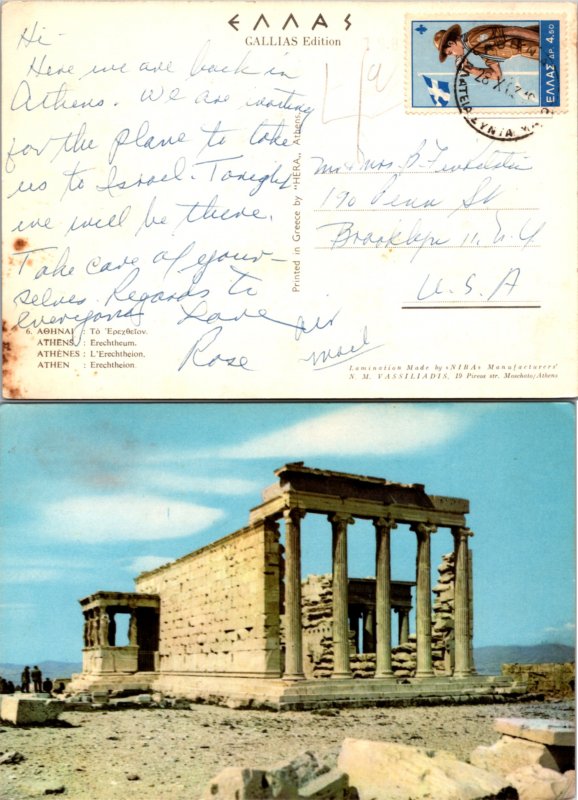 ΕΛΛΑΣ
GALLIAS Edition
Hi -
Here we are back in
Athens. We are waiting
for the plane to take
us to Israel. Tonight
we will be there.
Take care of your-
selves. Regards to
everyone Love
Rose
air
mail
Printed in Greece by "HERA,, Athens.
ΕΛΛΑΣ ΔΡ. 4.50
Mr & Mrs. B.
190 Penn St
Brooklyn 11. N.Y
U. S. A
6. ΑΘΗΝΑΙ : Τὸ Ἐρεχθεῖον.
ATHENS : Erechtheum.
ATHÈNES : L'Erechtheion.
ATHEN : Erechtheion.
Lamination Made by «NIBA» Manufacturers'
N. M. VASSILIADIS, 19 Pireos str. Moschato/Athens